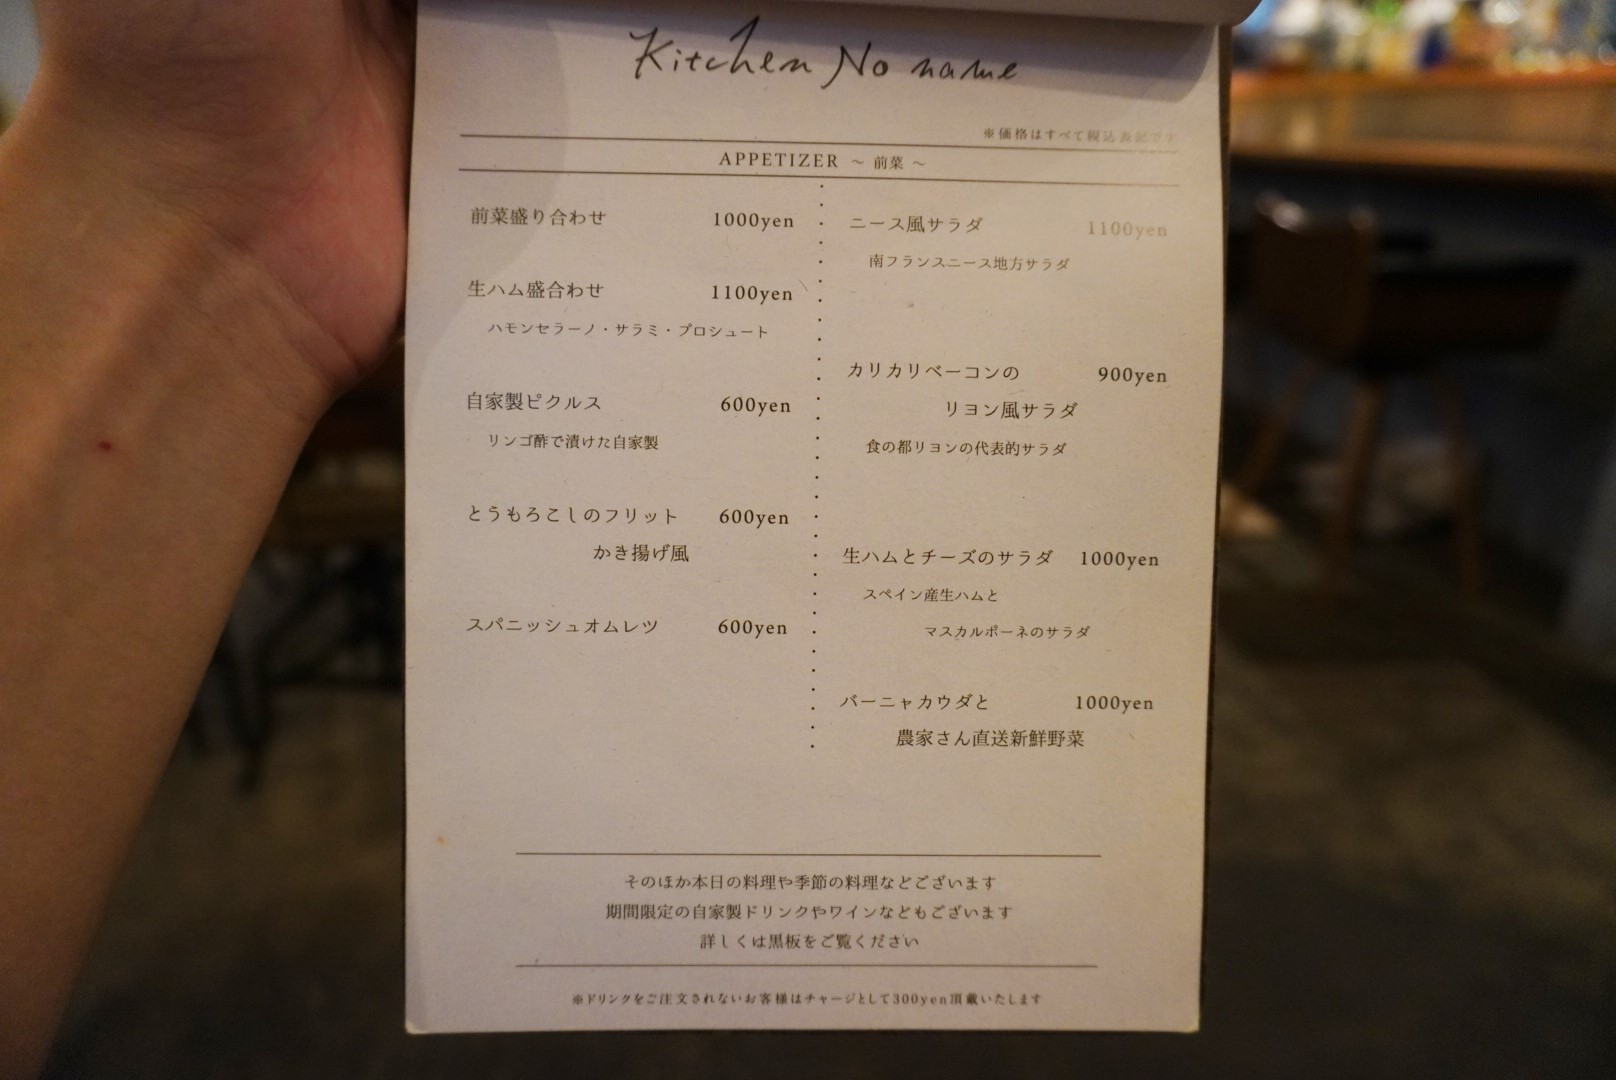 Kitchen No name
※価格はすべて税込表記です
APPETIZER ～ 前菜 ～
前菜盛り合わせ 1000yen
生ハム盛合わせ 1100yen
ハモンセラーノ・サラミ・プロシュート
自家製ピクルス 600yen
リンゴ酢で漬けた自家製
とうもろこしのフリット 600yen
かき揚げ風
スパニッシュオムレツ 600yen
ニース風サラダ 1100yen
南フランスニース地方サラダ
カリカリベーコンの 900yen
リヨン風サラダ
食の都リヨンの代表的サラダ
生ハムとチーズのサラダ 1000yen
スペイン産生ハムと
マスカルポーネのサラダ
バーニャカウダと 1000yen
農家さん直送新鮮野菜
そのほか本日の料理や季節の料理などございます
期間限定の自家製ドリンクやワインなどもございます
詳しくは黒板をご覧ください
※ドリンクをご注文されないお客様はチャージとして300yen頂戴いたします